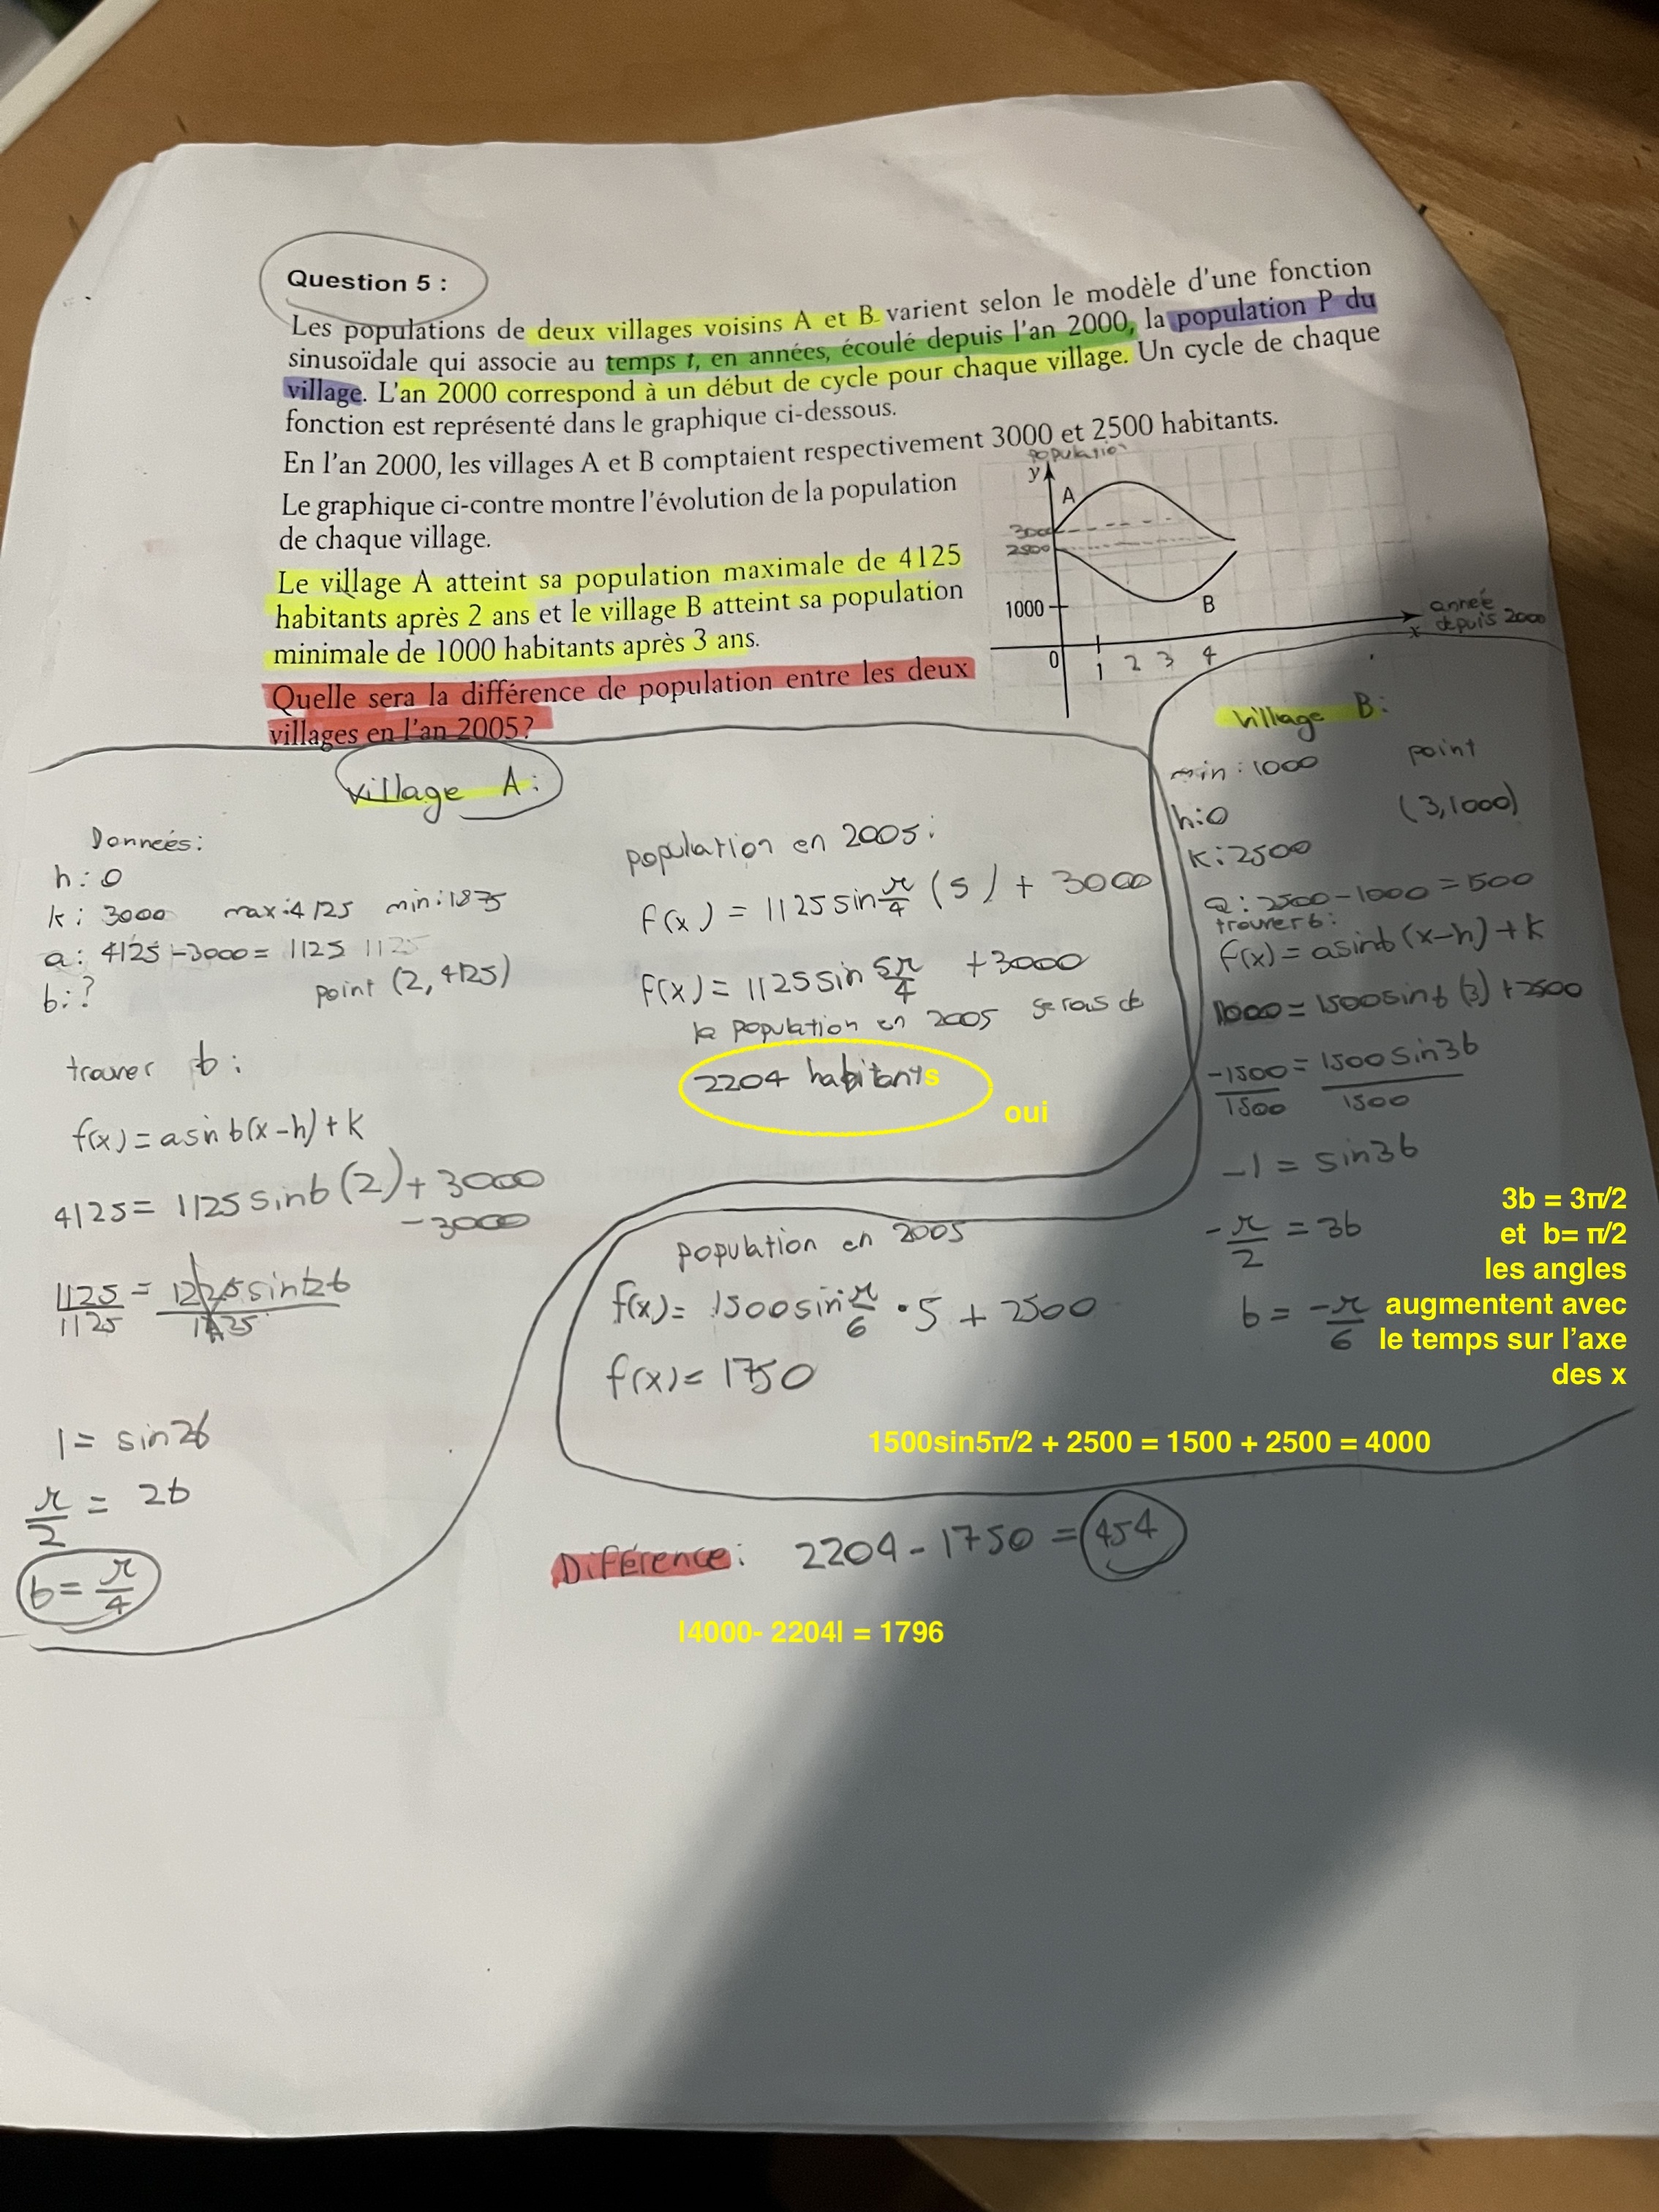 Question 5 :
Les populations de deux villages voisins A et B varient selon le modèle d'une fonction
sinusoïdale qui associe au temps t, en années, écoulé depuis l'an 2000, la population P du
village. L'an 2000 correspond à un début de cycle pour chaque village. Un cycle de chaque
fonction est représenté dans le graphique ci-dessous.
En l'an 2000, les villages A et B comptaient respectivement 3000 et 2500 habitants.
Le graphique ci-contre montre l'évolution de la population
de chaque village.
Le village A atteint sa population maximale de 4125
habitants après 2 ans et le village B atteint sa population
minimale de 1000 habitants après 3 ans.
Quelle sera la différence de population entre les deux
villages en l'an 2005?
population
y
A
3000
2500
1000
B
année
depuis 2000
x
0
1 2 3 4
village A:
Données:
h: 0
k: 3000 max: 4125 min: 1875
a: 4125-3000= 1125 1125
b: ? point (2, 4125)
trouver b:
f(x)=asinb(x-h)+k
4125= 1125sinb(2)+3000
-3000
1125 = 1225sin2b
1125 1125
1= sin2b
π/2 = 2b
b= π/4
population en 2005:
f(x) = 1125sin π/4 (5) + 3000
f(x)= 1125sin 5π/4 +3000
la population en 2005 serais de
2204 habitants
oui
village B:
min: 1000 point
h:0 (3,1000)
k: 2500
a: 2500-1000=1500
trouver b:
f(x)=asinb(x-h)+k
1000=1500sinb(3)+2500
-1500 = 1500sin3b
1500 1500
-1 = sin3b
-π/2 = 3b
b = -π/6
3b = 3π/2
et b= π/2
les angles
augmentent avec
le temps sur l'axe
des x
population en 2005
f(x)= 1500sin π/6 • 5 + 2500
f(x)= 1750
1500sin5π/2 + 2500 = 1500 + 2500 = 4000
Diférence: 2204-1750=454
|4000- 2204| = 1796